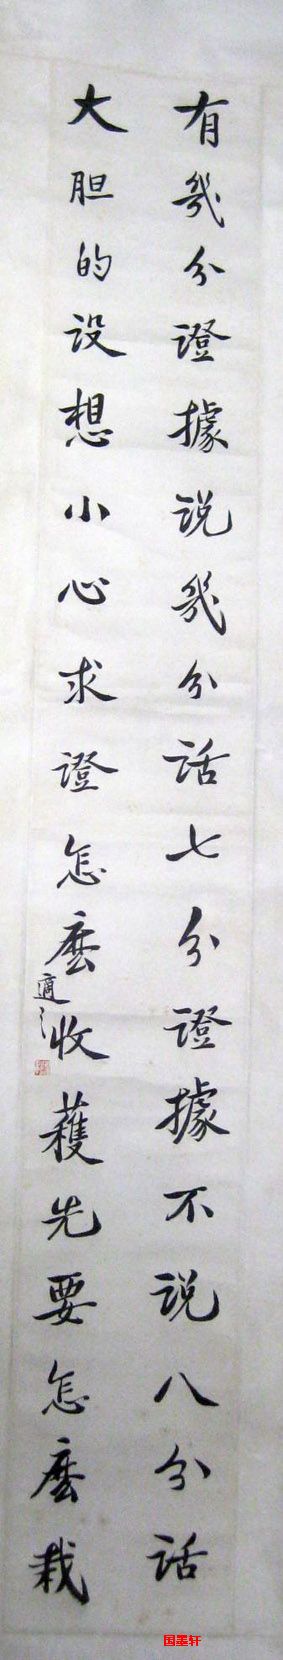 有幾分證據说幾分话七分證據不说八分话
大胆的设想小心求證怎麽收穫先要怎麽栽
適之
国墨轩